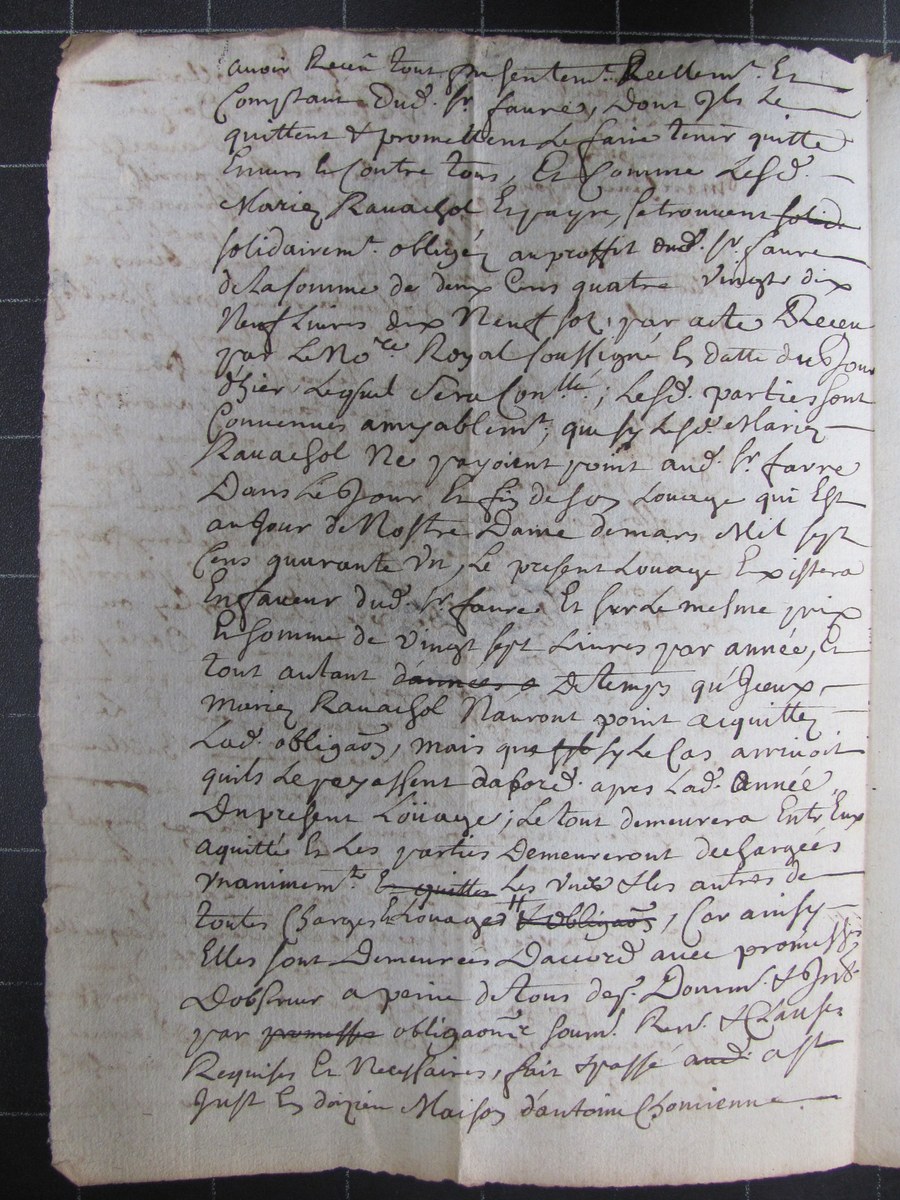 avoir Receu tout presentem.t Reellem.t Et
Comptant Dud. Sr. faure, Dont Ils Le
quittent & promettent Le faire tenir quitte
Envers Et Contre tous, Et Comme Lesd.
Mariez Ravachol Et payre, se trouvent solida
solidairem.t obligéz au proffit dud. Sr. faure
de La somme de deux Cens quatre vingts dix
Neuf Livres dix Neuf sol, par acte Receu
par Le No.re Royal soussigné En datte du Jour
d'hier Lequel sera Con.llé; Lesd. parties sont
Convenues amyablem.t, que sy Lesd. Mariez
Ravachol Ne payoient point aud. Sr. favre
Dans Le Jour Et fin de son Louage qui Est
au Jour de Nostre Dame de mars Mil sept
Cens quarante Un, Le present Louage Existera
En faveur dud. Sr. faure Et sur Le mesme prix
Et somme de vingt sept Livres par année, Et
tout autant d'années De temps qu'Iceux
Mariez Ravachol N'auront point acquittez
Lad. obligaon, mais que sy Le Cas arrivoit
quils Le payassent dabord apres Lad. année
Du present Loüage, Le tout demeurera Entr'Eux
aquitté Et Les parties Demeureront dechargées
Unanimem.t Et quittes Les Unes & Les autres de
toutes Charges Et Louages & obligaons, Car ainsy
Elles sont Demeurées D'accord avec promesses
D'observer a peine de tous des. Domm. & Int.
par promesse obligaon soum. Ren. & Clauses
Requises Et Necessaires, fait & passé aud. a St
Just En doizieu Maison d'antoine Chomienne